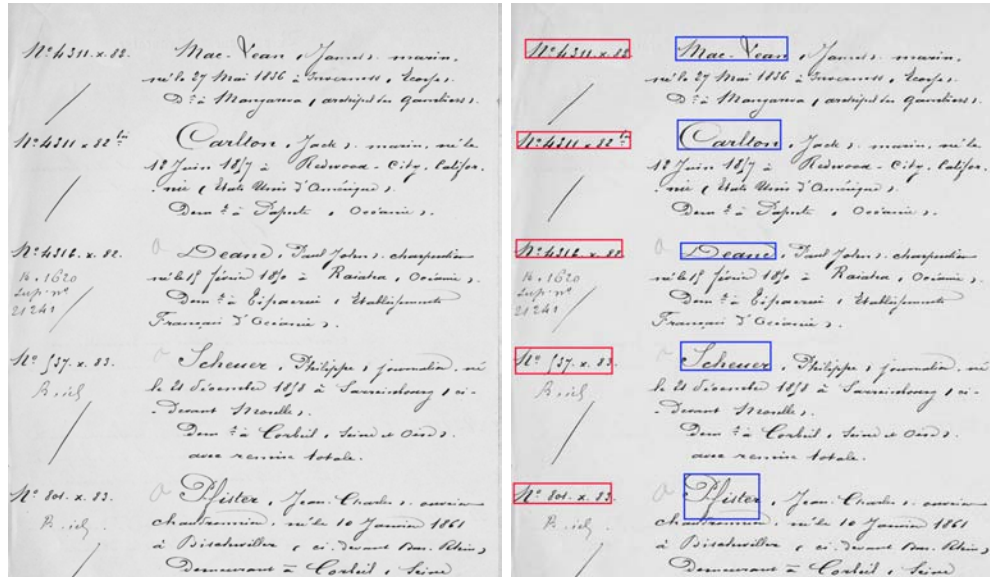 Nº 4311. x. 82. Mac-Vean, James, marin,
né le 27 Mai 1836 à Inverness, Écosse.
Dt à Mangareva (archipel des Gambiers).
Nº 4311 x 82 bis Carlton, Jack, marin, né le
18 Juin 1857 à Redwood-City, Califor-
-nie (États Unis d'Amérique).
Demt à Papeete, Océanie.
Nº 4316. x. 82. Deane, Paul John, charpentier
14.1620 né le 15 février 1850 à Raiatea, Océanie
Sup. nº
21241 Demt à, Établissements
Français d'Océanie.
Nº 537. x. 83. Scheuer, Philippe, journalier, né
le 21 décembre 1858 à Sarrebourg, ci-
-devant Moselle.
Demt à Corbeil, Seine et Oise.
avec remise totale.
Nº 801. x. 83. Pfister, Jean Charles, ouvrier
né le 10 Janvier 1861
à Bischwiller, ci-devant Bas-Rhin,
Demeurant à Corbeil, Seine
Nº 4311. x. 82. Mac-Vean, James, marin,
né le 27 Mai 1836 à Inverness, Écosse.
Dt à Mangareva (archipel des Gambiers).
Nº 4311 x 82 bis Carlton, Jack, marin, né le
18 Juin 1857 à Redwood-City, Califor-
-nie (États Unis d'Amérique).
Demt à Papeete, Océanie.
Nº 4316. x. 82. Deane, Paul John, charpentier
14.1620 né le 15 février 1850 à Raiatea, Océanie
Sup. nº
21241 Demt à, Établissements
Français d'Océanie.
Nº 537. x. 83. Scheuer, Philippe, journalier, né
le 21 décembre 1858 à Sarrebourg, ci-
-devant Moselle.
Demt à Corbeil, Seine et Oise.
avec remise totale.
Nº 801. x. 83. Pfister, Jean Charles, ouvrier
né le 10 Janvier 1861
à Bischwiller, ci-devant Bas-Rhin,
Demeurant à Corbeil, Seine